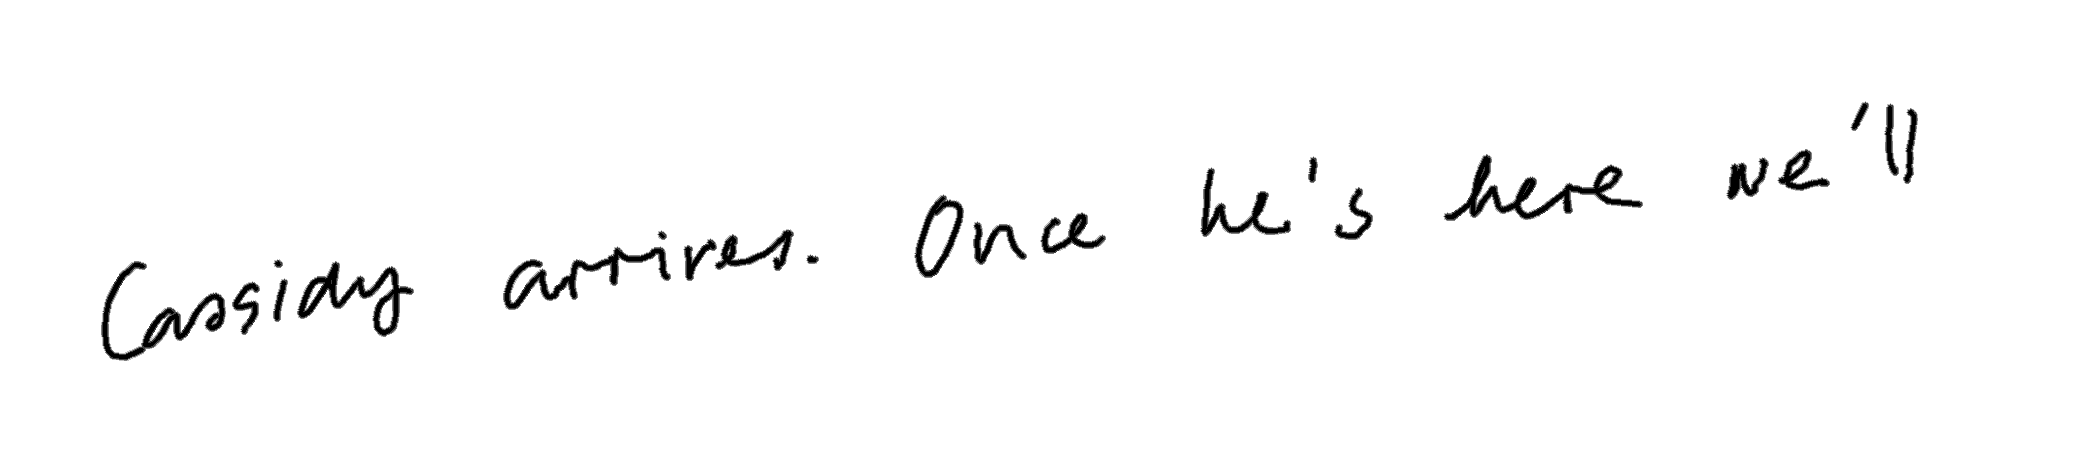 Cassidy arrives. Once he's here we'll